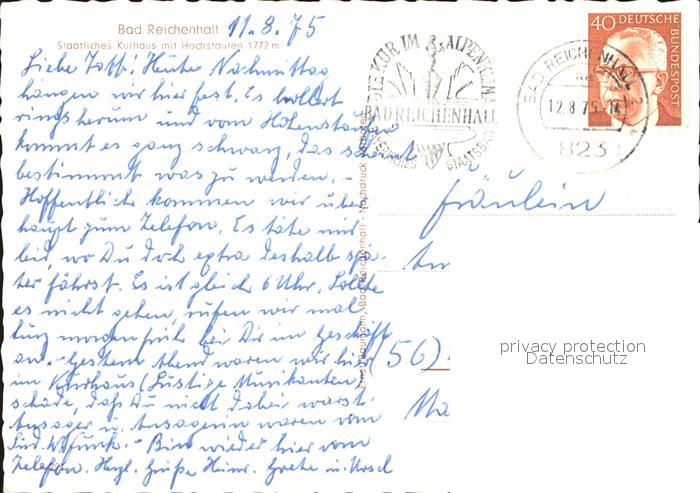 Bad Reichenhall 11.8.75
Staatliches Kurhaus mit Hochstaufen 1772 m
Liebe Heute Nachmittag
hängen wir hier fest. Es bollert
ringsherum und vom Hohenstaufen
kommt es ganz schwarz, das scheint
bestimmt was zu werden. -
Hoffentlich kommen wir über-
haupt zum Telefon. Es täte mir
leid, wo Du doch extra deshalb spä-
ter fährst. Es ist gleich 6 Uhr. Sollte
es nicht gehen, rufen wir mal
kurz morgen früh bei Dir im Geschäft
an. - Gestern Abend waren wir hier
im Kurhaus (Lustige Musikanten)
schade, daß Du nicht dabei warst.
Ansager u. Ansagerin waren vom
Süd. W. Funk. - Bin wieder hier vom
Telefon. Hrzl. Grüße Heinr. Grete u. Ursel
DIE KUR IM ALPENKLIMA
BAD REICHENHALL
BAYERISCHES STAATSBAD
BAD REICHENHALL 2
12.8.75
823
40 DEUTSCHE
BUNDESPOST
Fräulein
An
(56)
Wa
privacy protection
Datenschutz
Bad Reichenhall - Nachdruck verboten